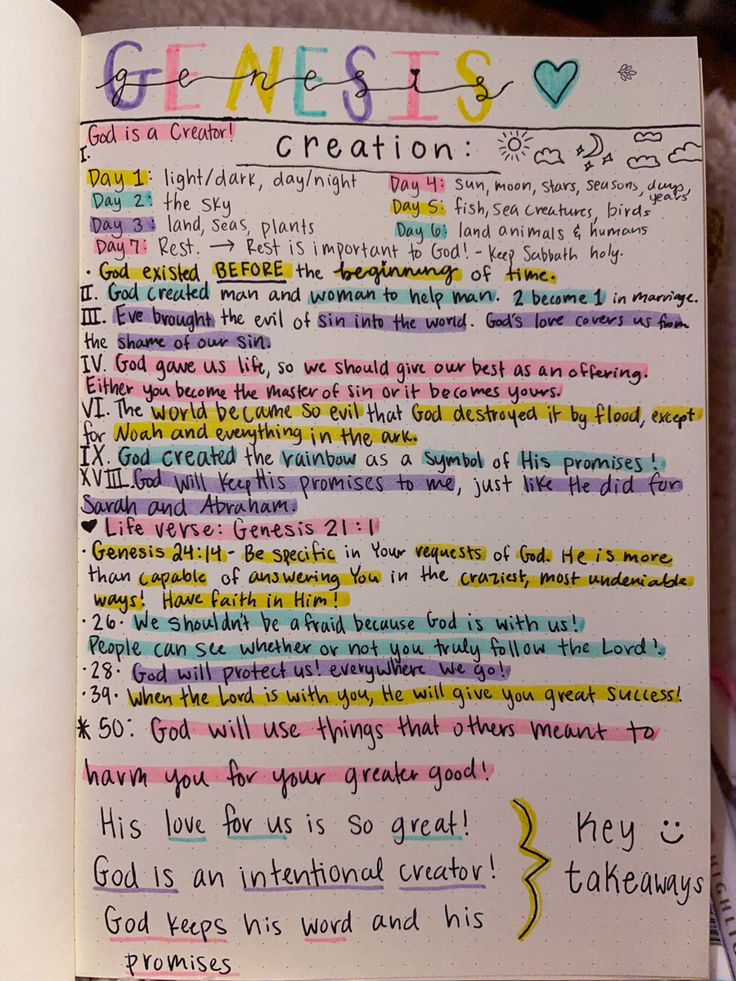 GENESIS
genesis
God is a Creator!
I.
creation:
Day 1: light/dark, day/night
Day 2: the sky
Day 3: land, seas, plants
Day 4: sun, moon, stars, seasons, days, years
Day 5: fish, sea creatures, birds
Day 6: land animals & humans
Day 7: Rest. → Rest is important to God! - Keep Sabbath holy.
• God existed BEFORE the beginning of time.
II. God created man and woman to help man. 2 become 1 in marriage.
III. Eve brought the evil of sin into the world. God's love covers us from
the shame of our sin.
IV. God gave us life, so we should give our best as an offering.
Either you become the master of sin or it becomes yours.
VI. The world became so evil that God destroyed it by flood, except
for Noah and everything in the ark.
IX. God created the rainbow as a symbol of His promises!
XVIII. God will keep His promises to me, just like He did for
Sarah and Abraham.
♥ Life verse: Genesis 21:1
• Genesis 24:14 - Be specific in your requests of God. He is more
than capable of answering you in the craziest, most undeniable
ways! Have faith in Him!
• 26• We shouldn't be afraid because God is with us!
People can see whether or not you truly follow the Lord!
• 28• God will protect us! everywhere we go!
• 39• When the Lord is with you, He will give you great success!
* 50: God will use things that others meant to
harm you for your greater good!
His love for us is so great!
God is an intentional creator!
God keeps his word and his
promises
Key
takeaways